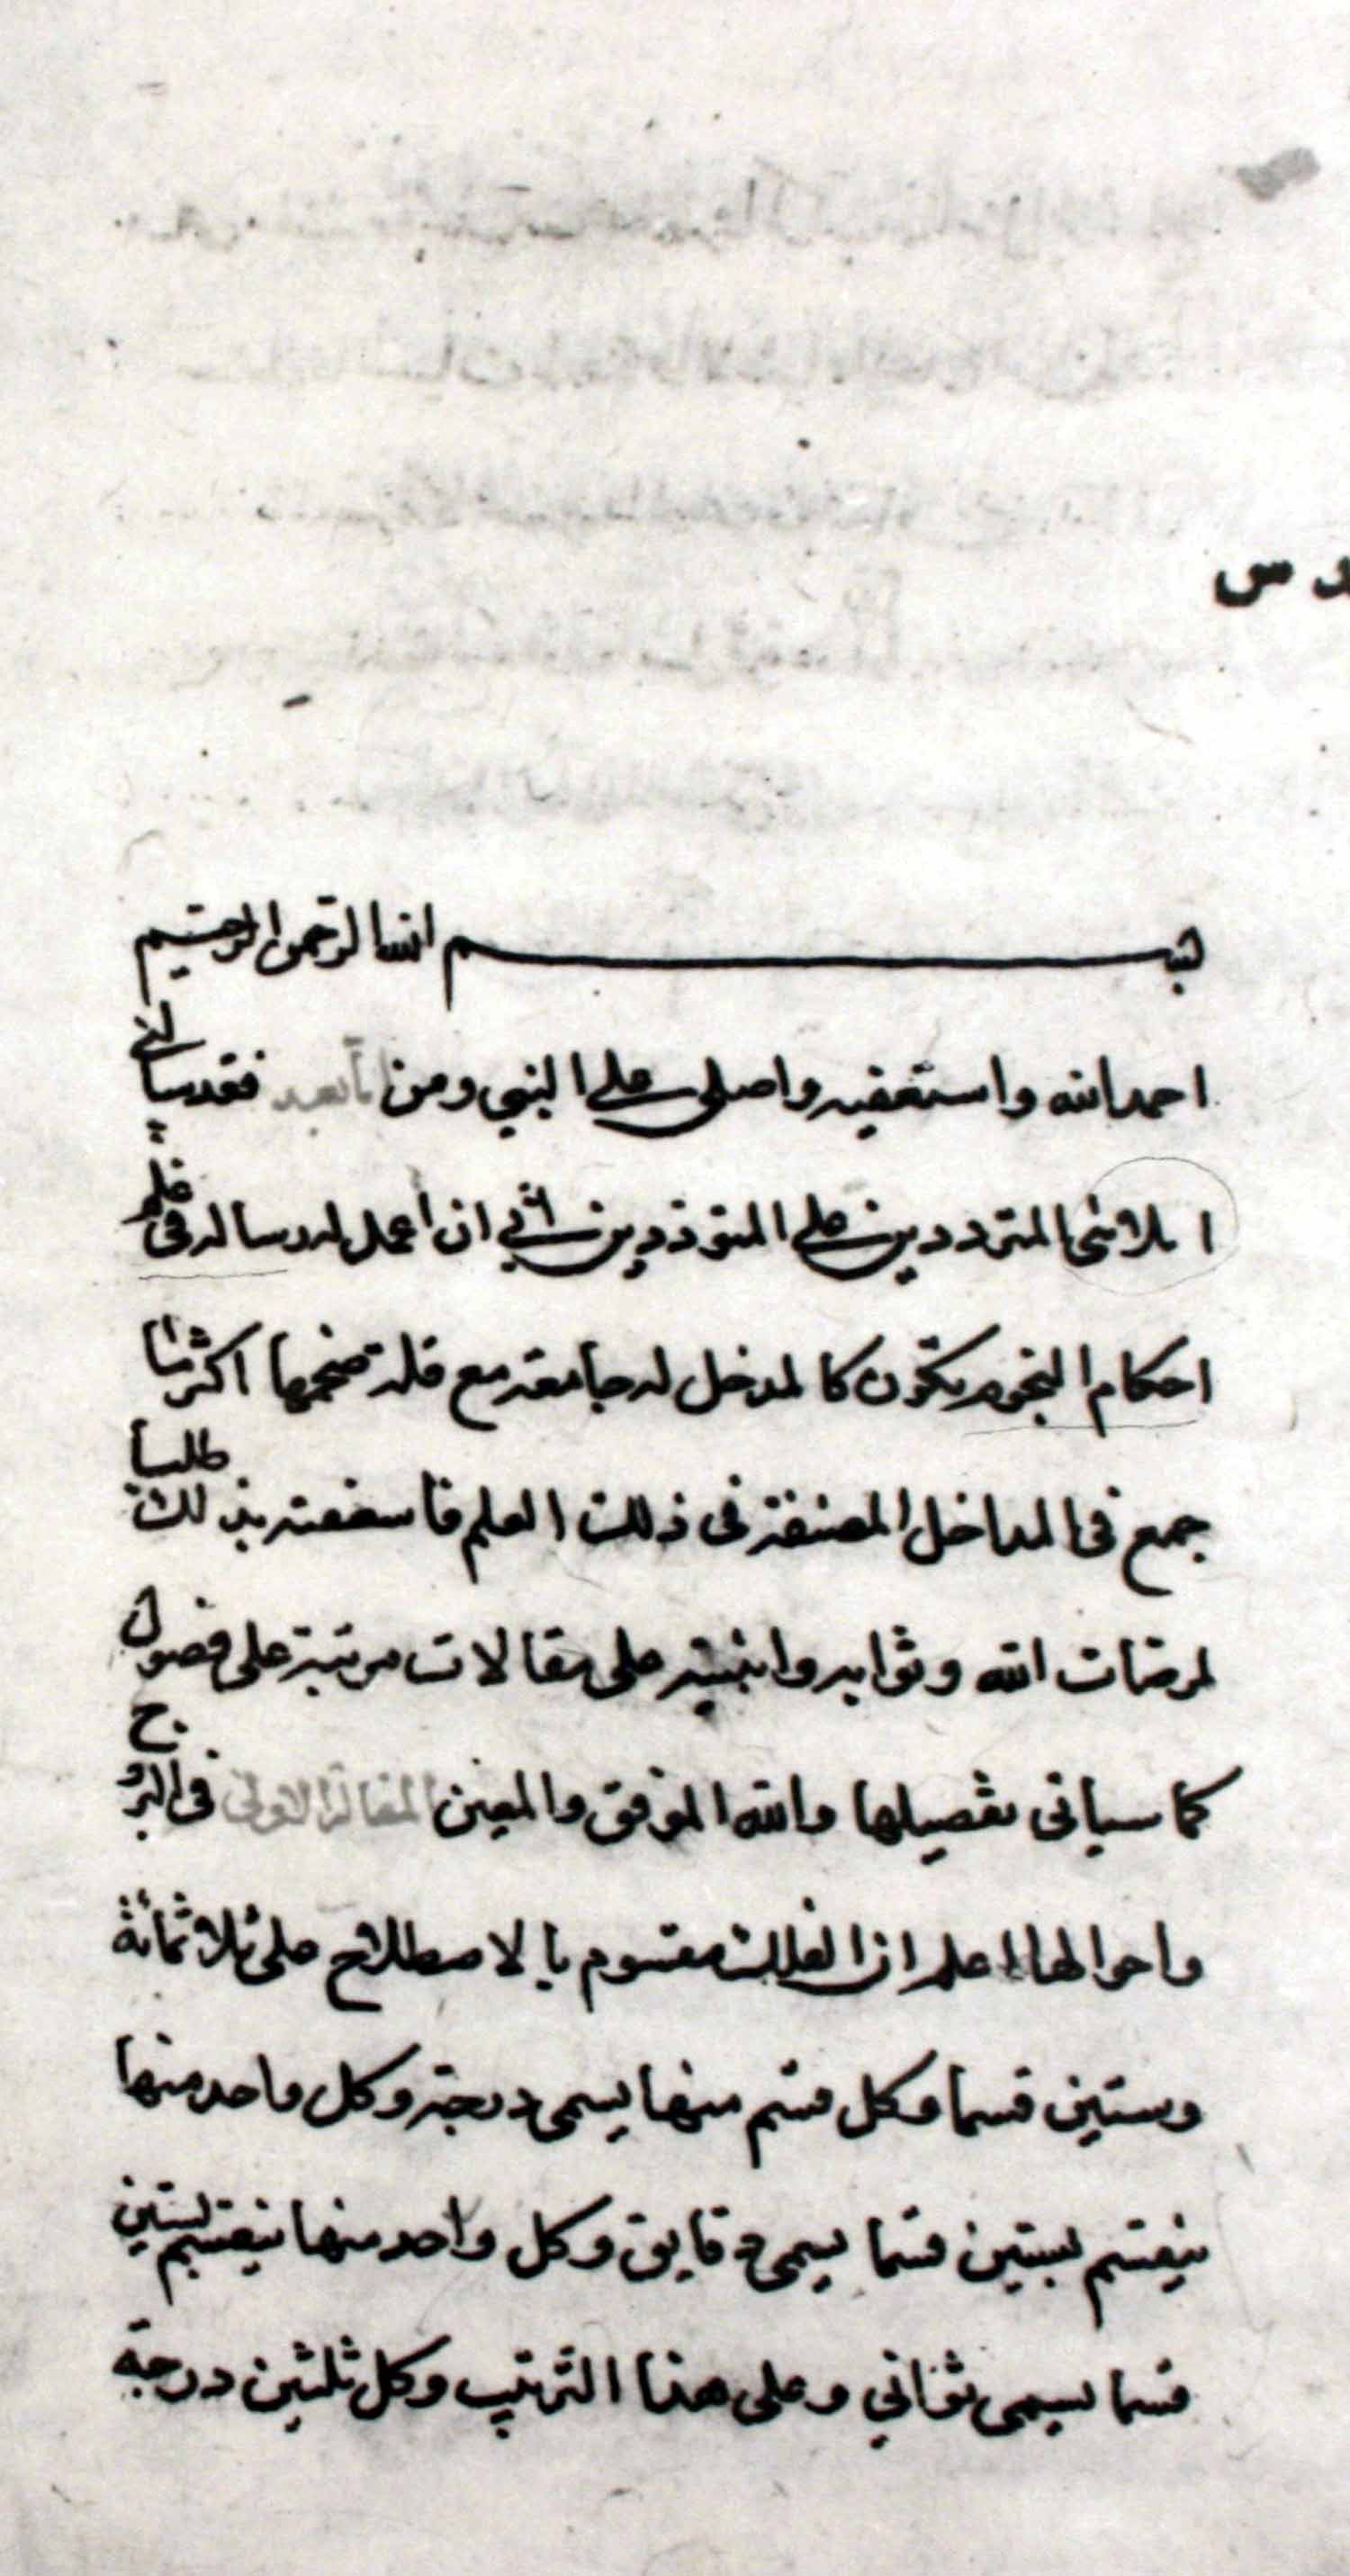 د س
بسم الله الرحمن الرحيم
احمد الله واستغفيه واصلى على النبي ومن تابعه فقد سالنى
المترددين على المتوددين الي ان اعمل له رساله فى علم
احكام النجوم يكون كالمدخل له جامعة مع قلة حجمها اكثر ما
جمع فى المداخل المصنفة فى ذلك العلم فاسعفته بذلك طلبا
لمرضات الله وثوابه وابنيته على مقالات مرتبة على فصول
كما سياتى تفصيلها والله الموفق والمعين المقالة الاولى فى البروج
واحوالها اعلم ان الفلك مقسوم بالاصطلاح على ثلاثمائة
وستين قسما وكل قسم منها يسمى درجة وكل واحد منها
ينقسم بستين قسما يسمى دقايق وكل واحد منها ينقسم بستين
قسما يسمى ثواني وعلى هذا الترتيب وكل ثلثين درجة